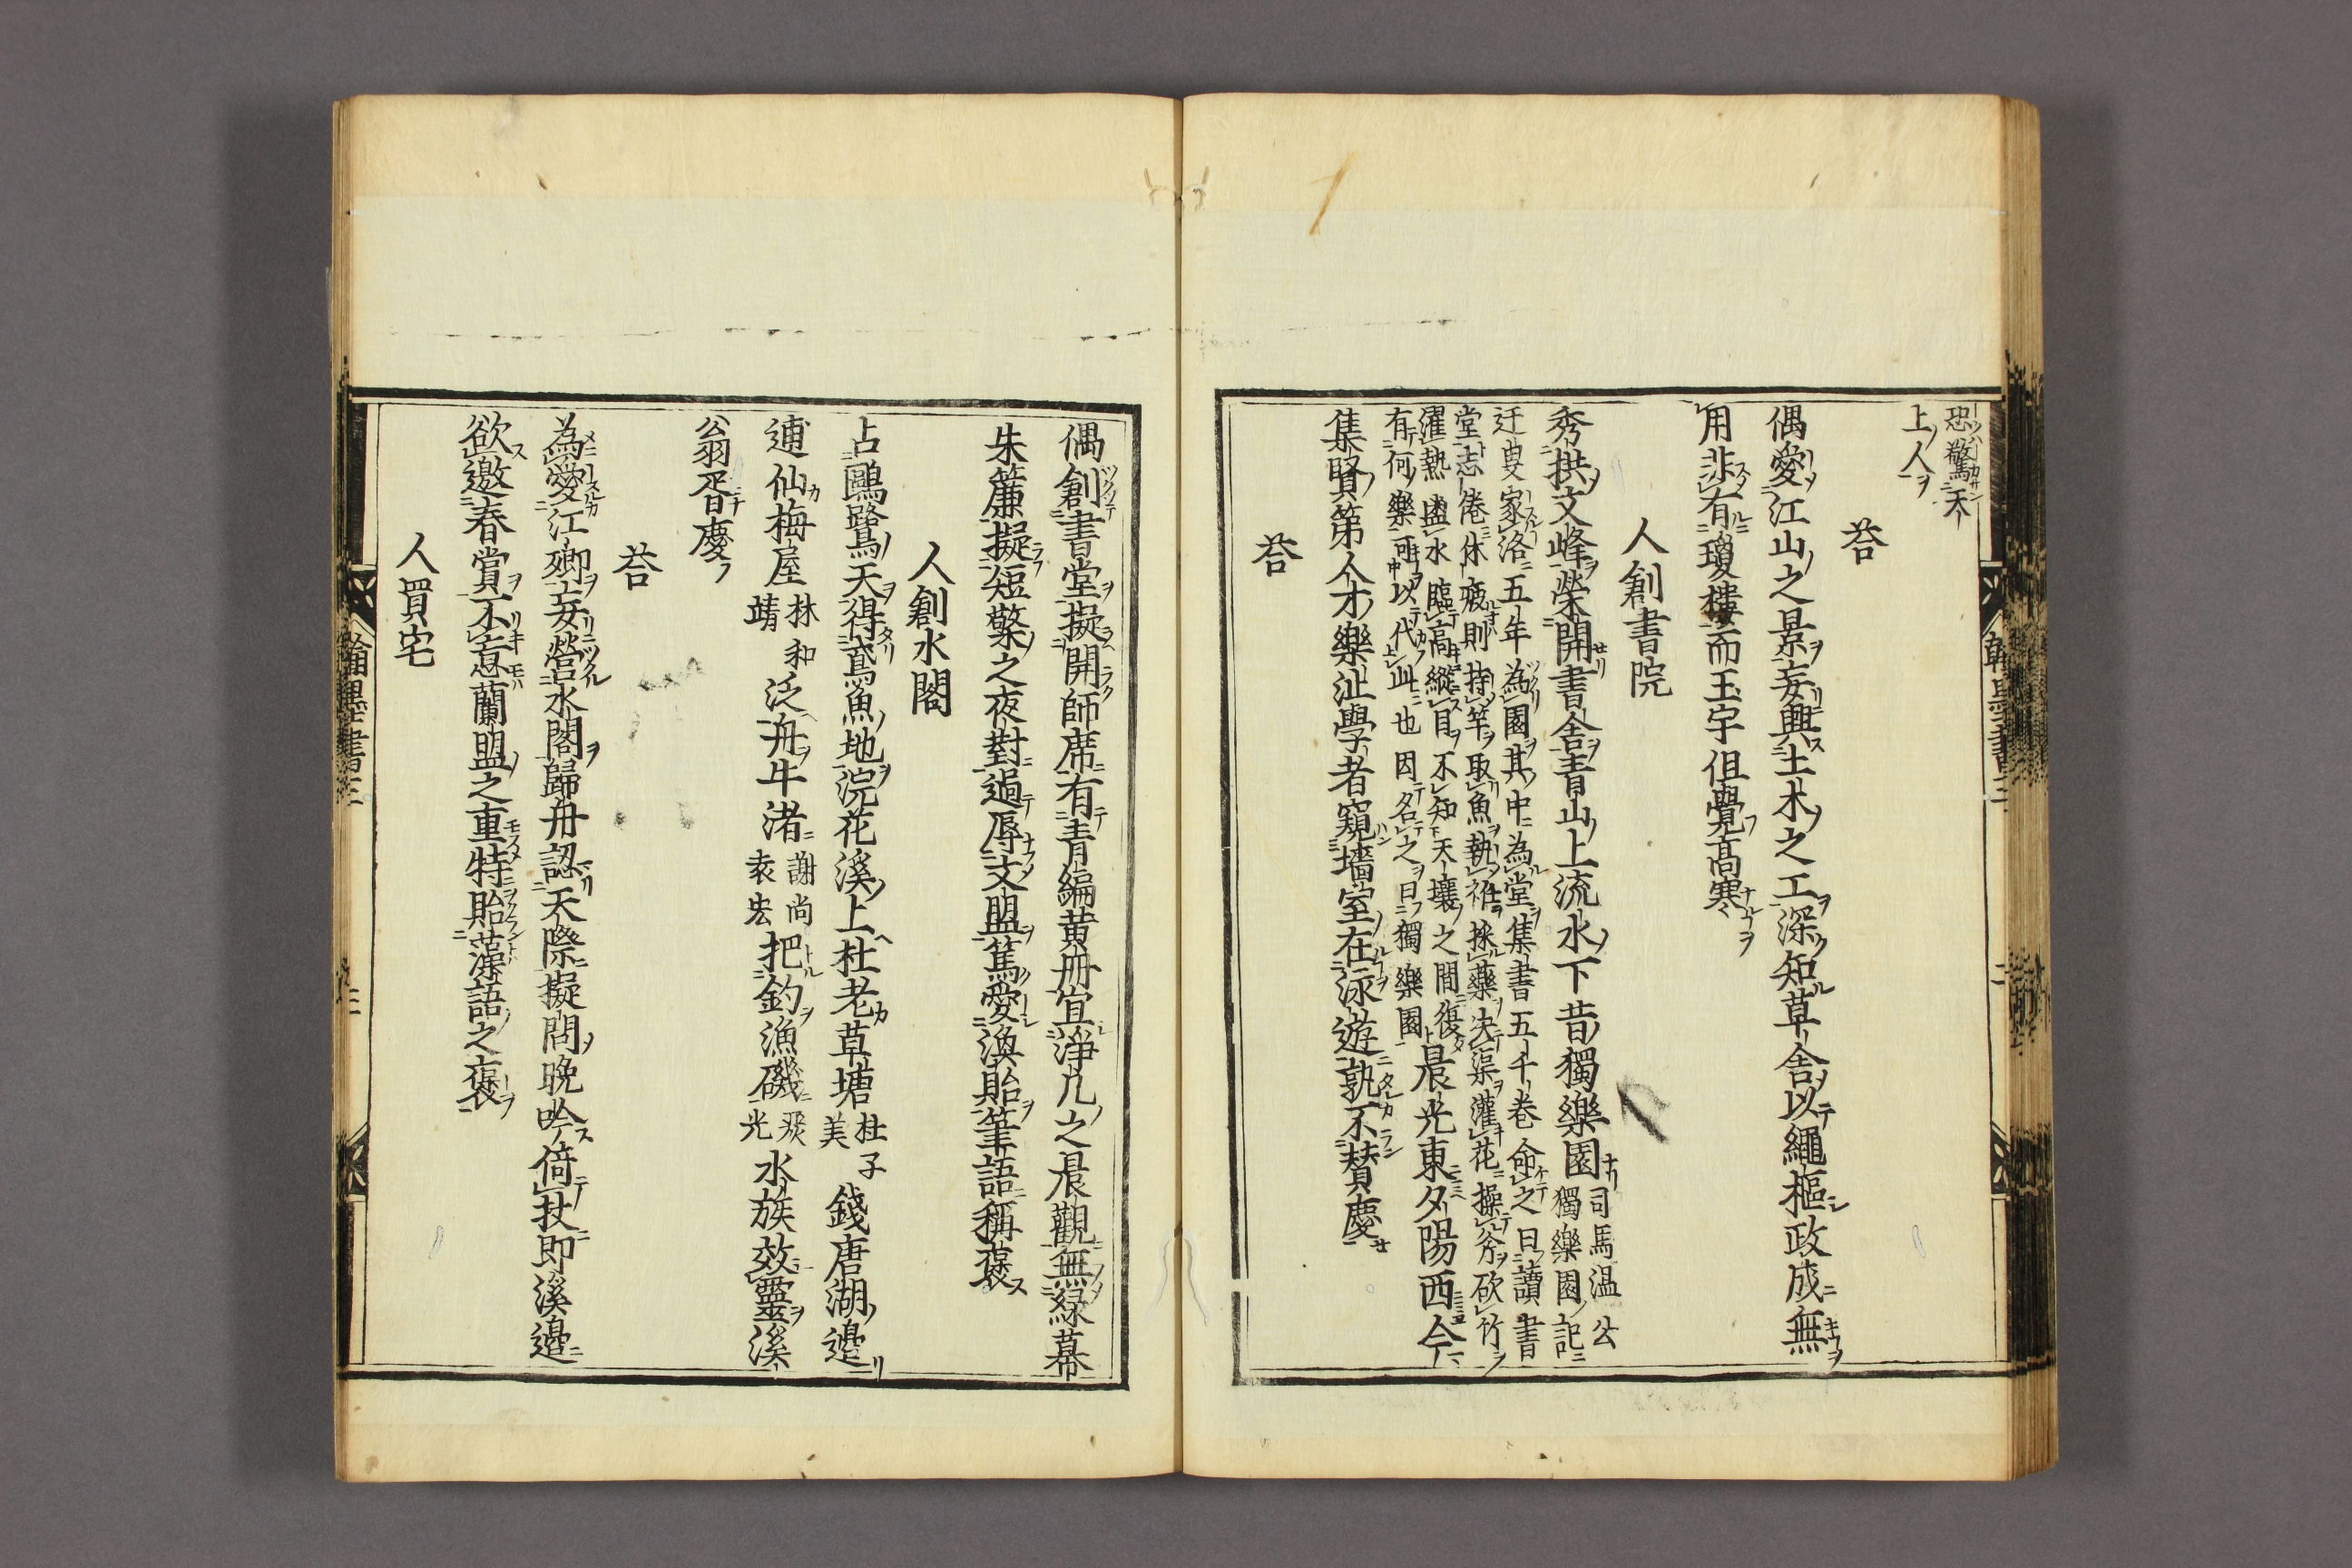 恐驚天
上人
荅
偶愛江山之景妄興土木之工深知草舍以繩樞政成無
用非有瓊樓而玉宇但覺高寒
人創書院
秀拱文峰榮開書舍青山上流水下昔獨樂園司馬温公獨樂園記
迂叟家洛五年為園其中為堂集書五千卷命之曰讀書
堂志倦休疲則持竿取魚執袵採藥决渠灌花操斧砍竹
濯熱盥水臨高縱目不知天壤之間復
有何樂可以代此也因名之曰獨樂園
晨光東夕陽西今
集賢第人才樂沚學者窺墻室在泳遊孰不賛慶
荅
偶創書堂擬開師席有青編黄册宜淨几之晨觀無緑幕
朱簾擬短檠之夜對過辱文盟篤愛渙貽筆語稱褒
人創水閣
占鷗鷺天得鳶魚地浣花溪上杜老草塘杜子美錢唐湖邊
逋仙梅屋林和靖泛舟牛渚謝尚袁宏把釣漁磯嚴光水族效靈溪
翁胥慶
荅
為愛江鄉妄營水閣歸舟認天際擬問晚吟倚杖即溪邊
欲邀春賞不意蘭盟之重特貽藻語之褒
人買宅
翰墨書三
二
翰墨書三
三